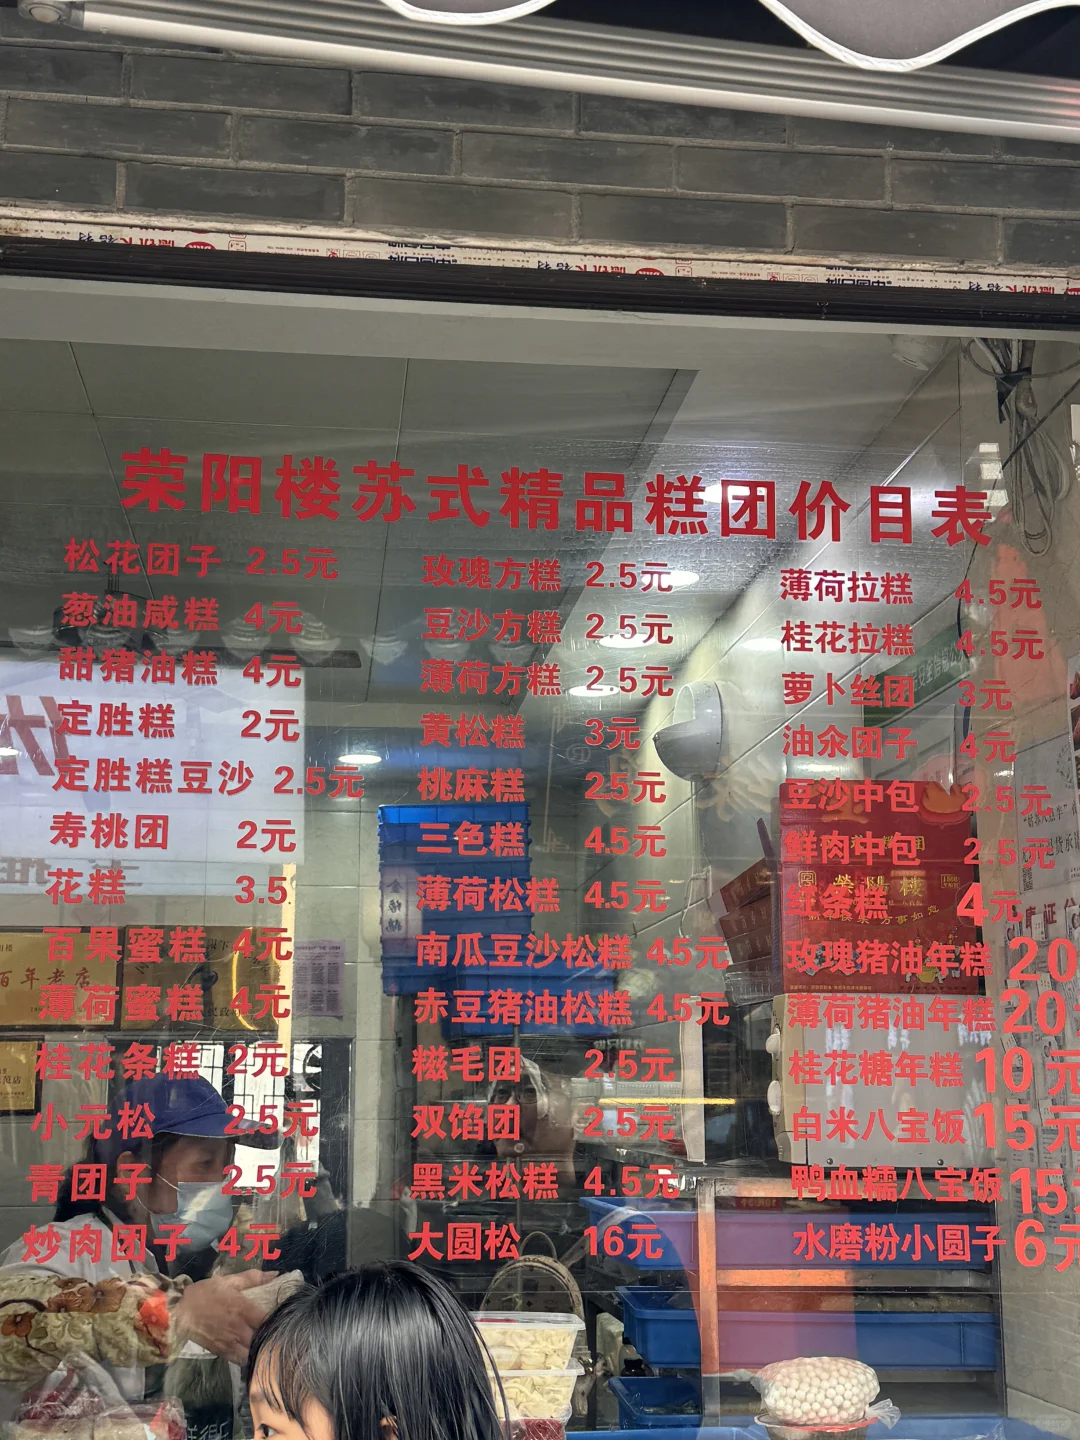 荣阳楼苏式精品糕团价目表
松花团子 2.5元
葱油咸糕 4元
甜猪油糕 4元
定胜糕 2元
定胜糕豆沙 2.5元
寿桃团 2元
花糕 3.5
百果蜜糕 4元
薄荷蜜糕 4元
桂花条糕 2元
小元松 2.5元
青团子 2.5元
炒肉团子 4元
玫瑰方糕 2.5元
豆沙方糕 2.5元
薄荷方糕 2.5元
黄松糕 3元
桃麻糕 2.5元
三色糕 4.5元
薄荷松糕 4.5元
南瓜豆沙松糕 4.5元
赤豆猪油松糕 4.5元
糍毛团 2.5元
双馅团 2.5元
黑米松糕 4.5元
大圆松 16元
薄荷拉糕 4.5元
桂花拉糕 4.5元
萝卜丝团 3元
油氽团子 4元
豆沙中包 2.5元
鲜肉中包 2.5元
红条糕 4元
玫瑰猪油年糕 20
薄荷猪油年糕 20
桂花糖年糕 10元
白米八宝饭 15元
鸭血糯八宝饭 15
水磨粉小圆子 6元
榮陽樓
百年老店